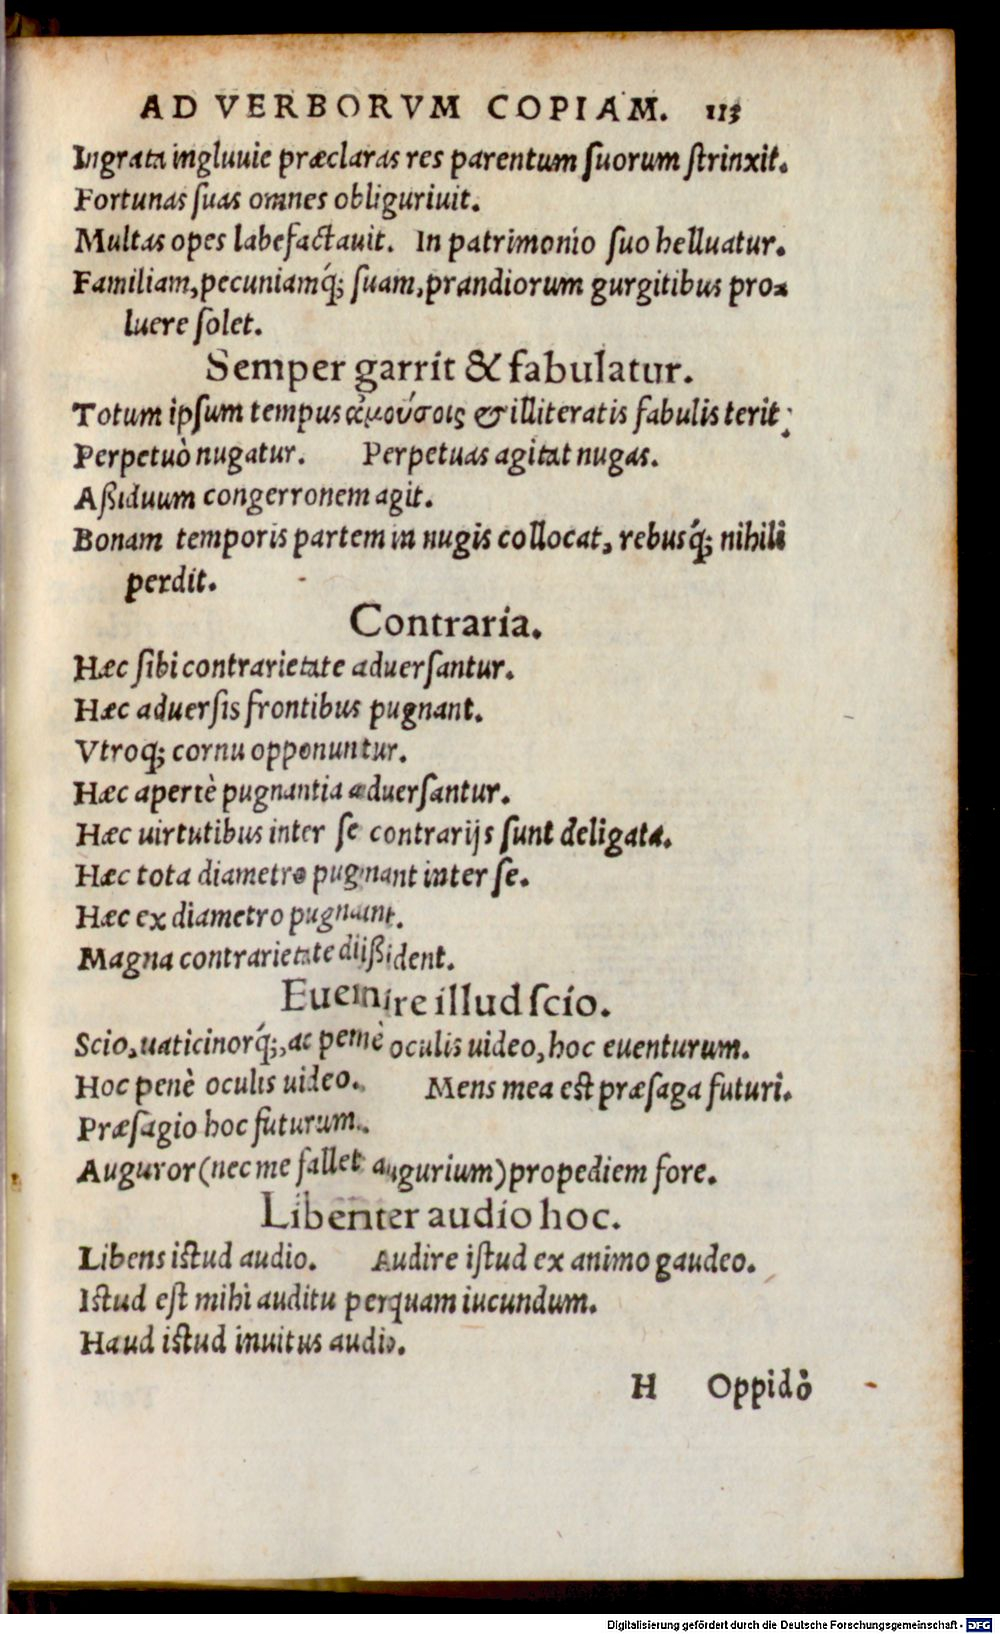 AD VERBORVM COPIAM. 113
Ingrata ingluuie præclaras res parentum suorum strinxit.
Fortunas suas omnes obliguriuit.
Multas opes labefactauit. In patrimonio suo helluatur.
Familiam, pecuniamq́; suam, prandiorum gurgitibus pro-
luere solet.
Semper garrit & fabulatur.
Totum ipsum tempus ἀμούσοις & illiteratis fabulis terit;
Perpetuò nugatur. Perpetuas agitat nugas.
Aßiduum congerronem agit.
Bonam temporis partem in nugis collocat, rebusq́; nihili
perdit.
Contraria.
Hæc sibi contrarietate aduersantur.
Hæc aduersis frontibus pugnant.
Vtroq; cornu opponuntur.
Hæc apertè pugnantia aduersantur.
Hæc uirtutibus inter se contrarijs sunt deligata.
Hæc tota diametro pugnant inter se.
Hæc ex diametro pugnant.
Magna contrarietate dißident.
Euenire illud scio.
Scio, uaticinorq́;, ac penè oculis uideo, hoc euenturum.
Hoc penè oculis uideo. Mens mea est præsaga futuri.
Præsagio hoc futurum.
Auguror (nec me fallet augurium) propediem fore.
Libenter audio hoc.
Libens istud audio. Audire istud ex animo gaudeo.
Istud est mihi auditu perquam iucundum.
Haud istud inuitus audio.
H Oppidò
Digitalisierung gefördert durch die Deutsche Forschungsgemeinschaft - DFG